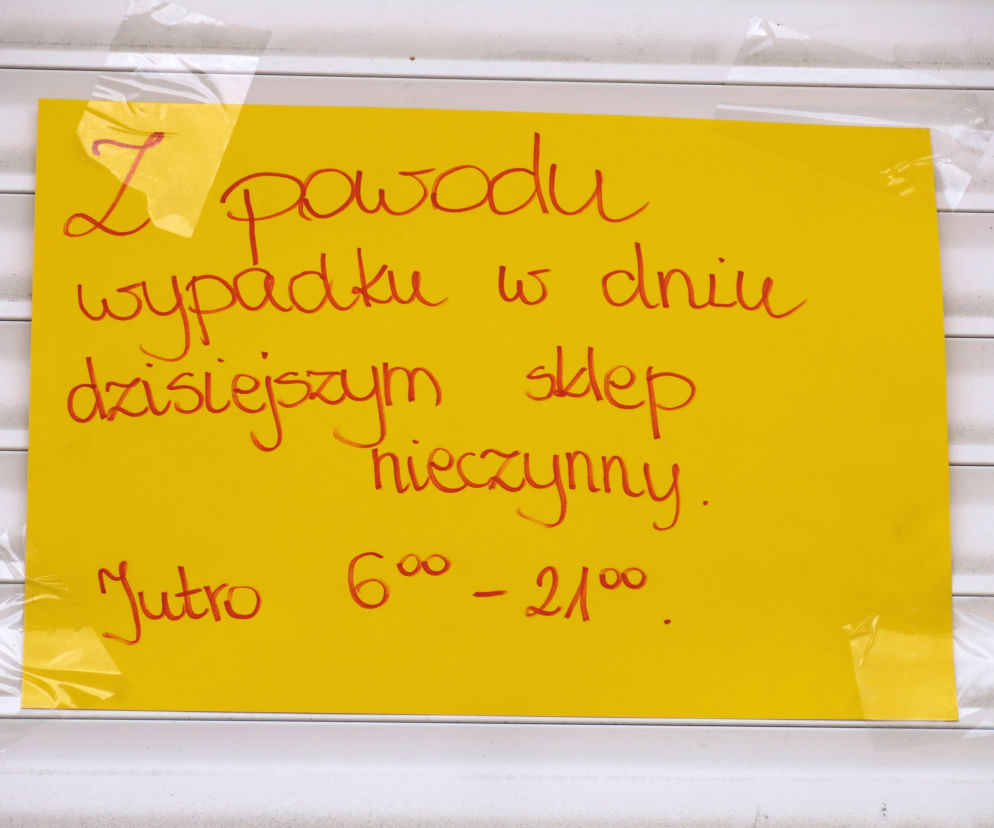 Z powodu
wypadku w dniu
dzisiejszym sklep
nieczynny.
Jutro 6⁰⁰ - 21⁰⁰.